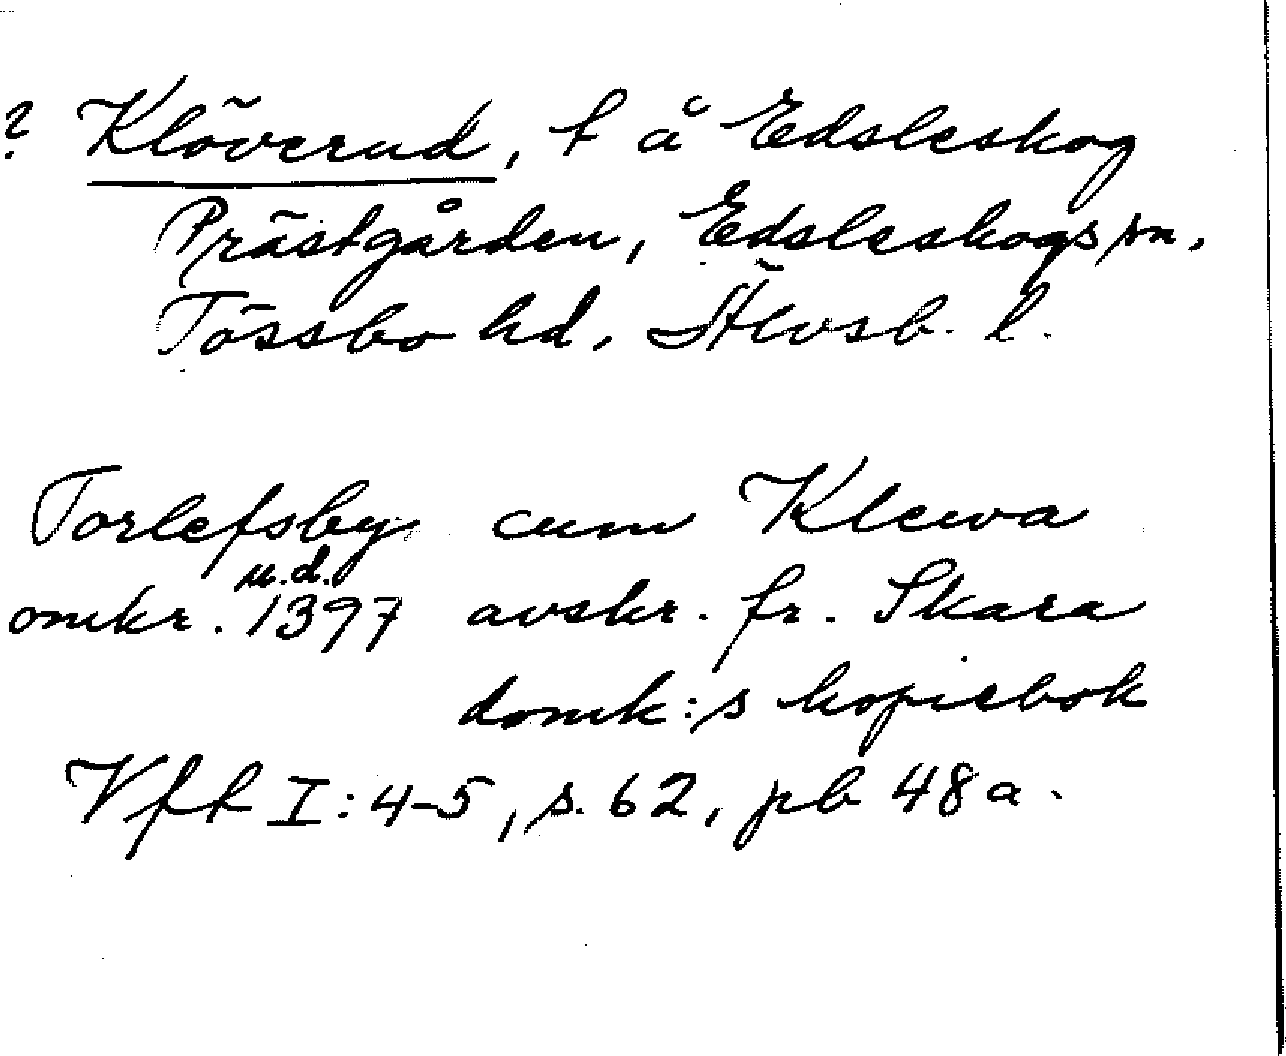 ? Klöverud, t å Edsleskog
Prästgården, Edsleskogs sn,
Tössbo hd, Älvsb. l.
Torlefsby cum Klewa
u.d.
omkr. 1397 avskr. fr. Skara
domk:s kopiebok
Vfft I:4-5, s. 62, pb 48a.